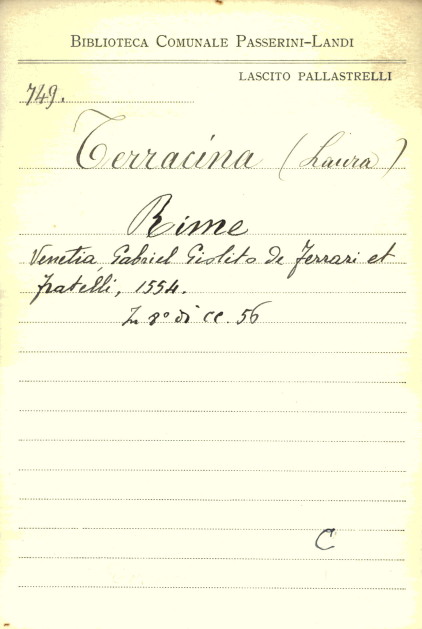 BIBLIOTECA COMUNALE PASSERINI-LANDI
LASCITO PALLASTRELLI
749.
Terracina (Laura)
Rime
Venetia, Gabriel Giolito de Ferrari et
fratelli, 1554.
In 8° di cc. 56
C